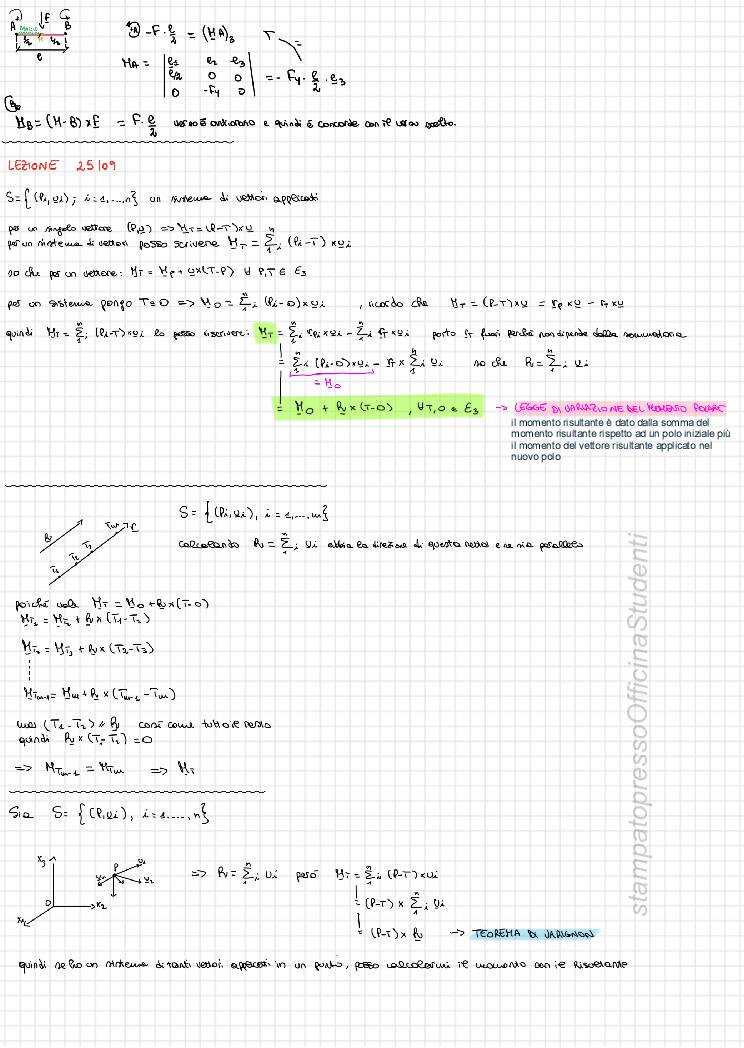 A F B
l/2 l/2
l
A) -F · l/2 = (M_A)_3
M_A = | e1 e2 e3 | = - Fy · l/2 · e3
| l/2 0 0 |
| 0 -Fy 0 |
M_B = (M-B) x F = F · l/2 verso è antiorario e quindi è concorde con il verso scelto.
LEZIONE 25/09
S = {(Pi, vi); i = 1,...,n} un sistema di vettori applicati
per un singolo vettore (P,v) => M_T = (P-T) x v
per un sistema di vettori posso scrivere M_T = Σ_1^n i (Pi-T) x vi
so che per un vettore: M_T = M_P + v x (T-P) ∀ P,T ∈ E3
per un sistema pongo T≡O => M_O = Σ_1^n i (Pi-O) x vi , ricordo che M_T = (P-T) x v = r_P x v - r_T x v
quindi M_T = Σ_1^n i (Pi-T) x vi lo posso riscrivere: M_T = Σ_1^n i r_Pi x vi - Σ_1^n i r_T x vi porto r_T fuori perché non dipende dalla sommatoria
= Σ_1^n i (Pi-O) x vi - r_T x Σ_1^n i vi so che Rv = Σ_1^n i vi
= M_O
= M_O + Rv x (T-O) , ∀ T,O ∈ E3 -> LEGGE DI VARIAZIONE DEL MOMENTO POLARE
il momento risultante è dato dalla somma del
momento risultante rispetto ad un polo iniziale più
il momento del vettore risultante applicato nel
nuovo polo
S = {(Pi, vi), i = 1,...,n}
Rv T1 T2 T3 Tm r
calcolando Rv = Σ_1^n i vi abbia la direzione di questa retta r e ne sia parallelo
poiché vale M_T = M_O + Rv x (T-O)
M_T1 = M_T2 + Rv x (T1-T2)
M_T2 = M_T3 + Rv x (T2-T3)
M_Tm-1 = M_m + Rv x (Tm-1 - Tm)
ma (T1-T2) // Rv così come tutto il resto
quindi Rv x (T1-T2) = 0
=> M_Tm-1 = M_Tm => M_T
Sia S = {(P,vi), i = 1....,n}
x3 O x2 x1 P v1 v2 vn
=> Rv = Σ_1^n i vi però M_T = Σ_1^n i (P-T) x vi
= (P-T) x Σ_1^n i vi
= (P-T) x Rv -> TEOREMA DI VARIGNON
quindi se ho un sistema di tanti vettori applicati in un punto, posso calcolarmi il momento con il Risultante
stampatopressoOfficinaStudenti